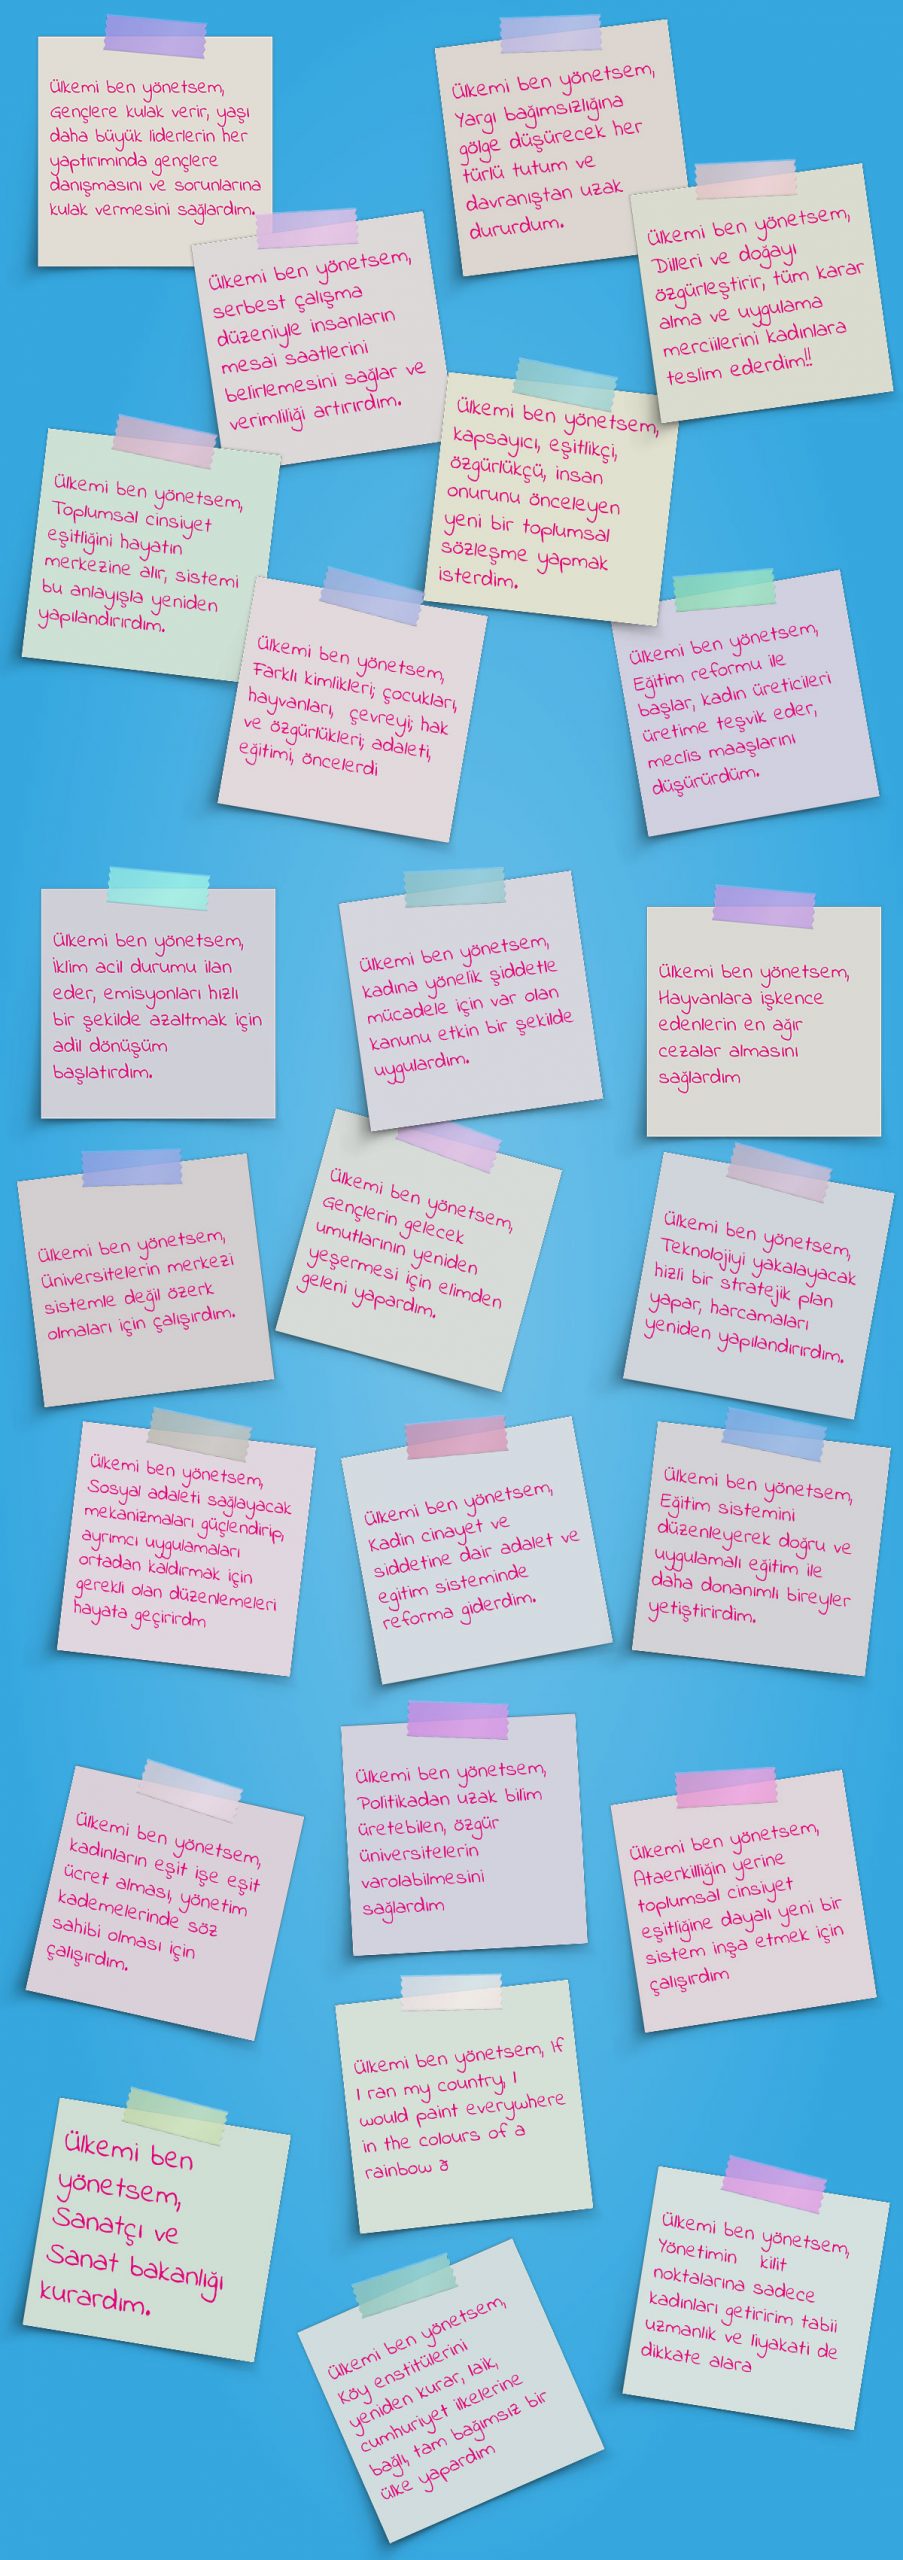 Ülkemi ben yönetsem,
Gençlere kulak verir, yaşı
daha büyük liderlerin her
yaptırımında gençlere
danışmasını ve sorunlarına
kulak vermesini sağlardım.
Ülkemi ben yönetsem,
Yargı bağımsızlığına
gölge düşürecek her
türlü tutum ve
davranıştan uzak
dururdum.
Ülkemi ben yönetsem,
Dilleri ve doğayı
özgürleştirir, tüm karar
alma ve uygulama
merciilerini kadınlara
teslim ederdim!!
Ülkemi ben yönetsem,
serbest çalışma
düzeniyle insanların
mesai saatlerini
belirlemesini sağlar ve
verimliliği artırırdım.
Ülkemi ben yönetsem,
kapsayıcı, eşitlikçi,
özgürlükçü, insan
onurunu önceleyen
yeni bir toplumsal
sözleşme yapmak
isterdim.
Ülkemi ben yönetsem,
Toplumsal cinsiyet
eşitliğini hayatın
merkezine alır, sistemi
bu anlayışla yeniden
yapılandırırdım.
Ülkemi ben yönetsem,
Farklı kimlikleri; çocukları,
hayvanları, çevreyi; hak
ve özgürlükleri; adaleti,
eğitimi, öncelerdi
Ülkemi ben yönetsem,
Eğitim reformu ile
başlar, kadın üreticileri
üretime teşvik eder,
meclis maaşlarını
düşürürdüm.
Ülkemi ben yönetsem,
İklim acil durumu ilan
eder, emisyonları hızlı
bir şekilde azaltmak için
adil dönüşüm
başlatırdım.
Ülkemi ben yönetsem,
kadına yönelik şiddetle
mücadele için var olan
kanunu etkin bir şekilde
uygulardım.
Ülkemi ben yönetsem,
Hayvanlara işkence
edenlerin en ağır
cezalar almasını
sağlardım
Ülkemi ben yönetsem,
üniversitelerin merkezi
sistemle değil özerk
olmaları için çalışırdım.
Ülkemi ben yönetsem,
Gençlerin gelecek
umutlarının yeniden
yeşermesi için elimden
geleni yapardım.
Ülkemi ben yönetsem,
Teknolojiyi yakalayacak
hizli bir stratejik plan
yapar, harcamaları
yeniden yapılandırırdım.
Ülkemi ben yönetsem,
Sosyal adaleti sağlayacak
mekanizmaları güçlendirip,
ayrımcı uygulamaları
ortadan kaldırmak için
gerekli olan düzenlemeleri
hayata geçirirdm
Ülkemi ben yönetsem,
Kadin cinayet ve
siddetine dair adalet ve
eğitim sisteminde
reforma giderdim.
Ülkemi ben yönetsem,
Eğitim sistemini
düzenleyerek doğru ve
uygulamalı eğitim ile
daha donanımlı bireyler
yetiştirirdim.
Ülkemi ben yönetsem,
kadınların eşit işe eşit
ücret alması, yönetim
kademelerinde söz
sahibi olması için
çalışırdım.
Ülkemi ben yönetsem,
Politikadan uzak bilim
üretebilen, özgür
üniversitelerin
varolabilmesini
sağlardım
Ülkemi ben yönetsem,
Ataerkilliğin yerine
toplumsal cinsiyet
eşitliğine dayalı yeni bir
sistem inşa etmek için
çalışırdım
Ülkemi ben yönetsem, If
I ran my country, I
would paint everywhere
in the colours of a
rainbow ð
Ülkemi ben
yönetsem,
Sanatçı ve
Sanat bakanlığı
kurardım.
Ülkemi ben yönetsem,
Yönetimin kilit
noktalarına sadece
kadınları getiririm tabii
uzmanlık ve liyakati de
dikkate alara
Ülkemi ben yönetsem,
Köy enstitülerini
yeniden kurar, laik,
cumhuriyet ilkelerine
bağlı, tam bağımsız bir
ülke yapardım